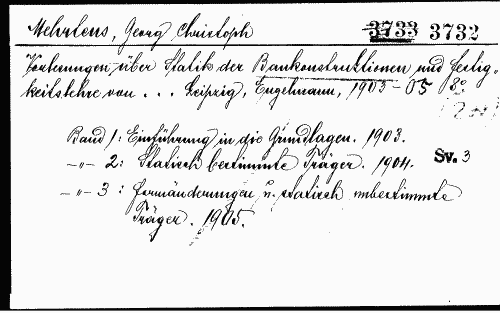 Mehrtens, Georg Christoph 3733 3732
Vorlesungen über Statik der Baukonstruktionen und Festig-
keitslehre von ... Leipzig, Engelmann, 1903-05 8°
Band 1: Einführung in die Grundlagen. 1903.
-"- 2: Statisch bestimmte Träger. 1904. Sv. 3
-"- 3: Formänderungen u. statisch unbestimmte
Träger. 1905.